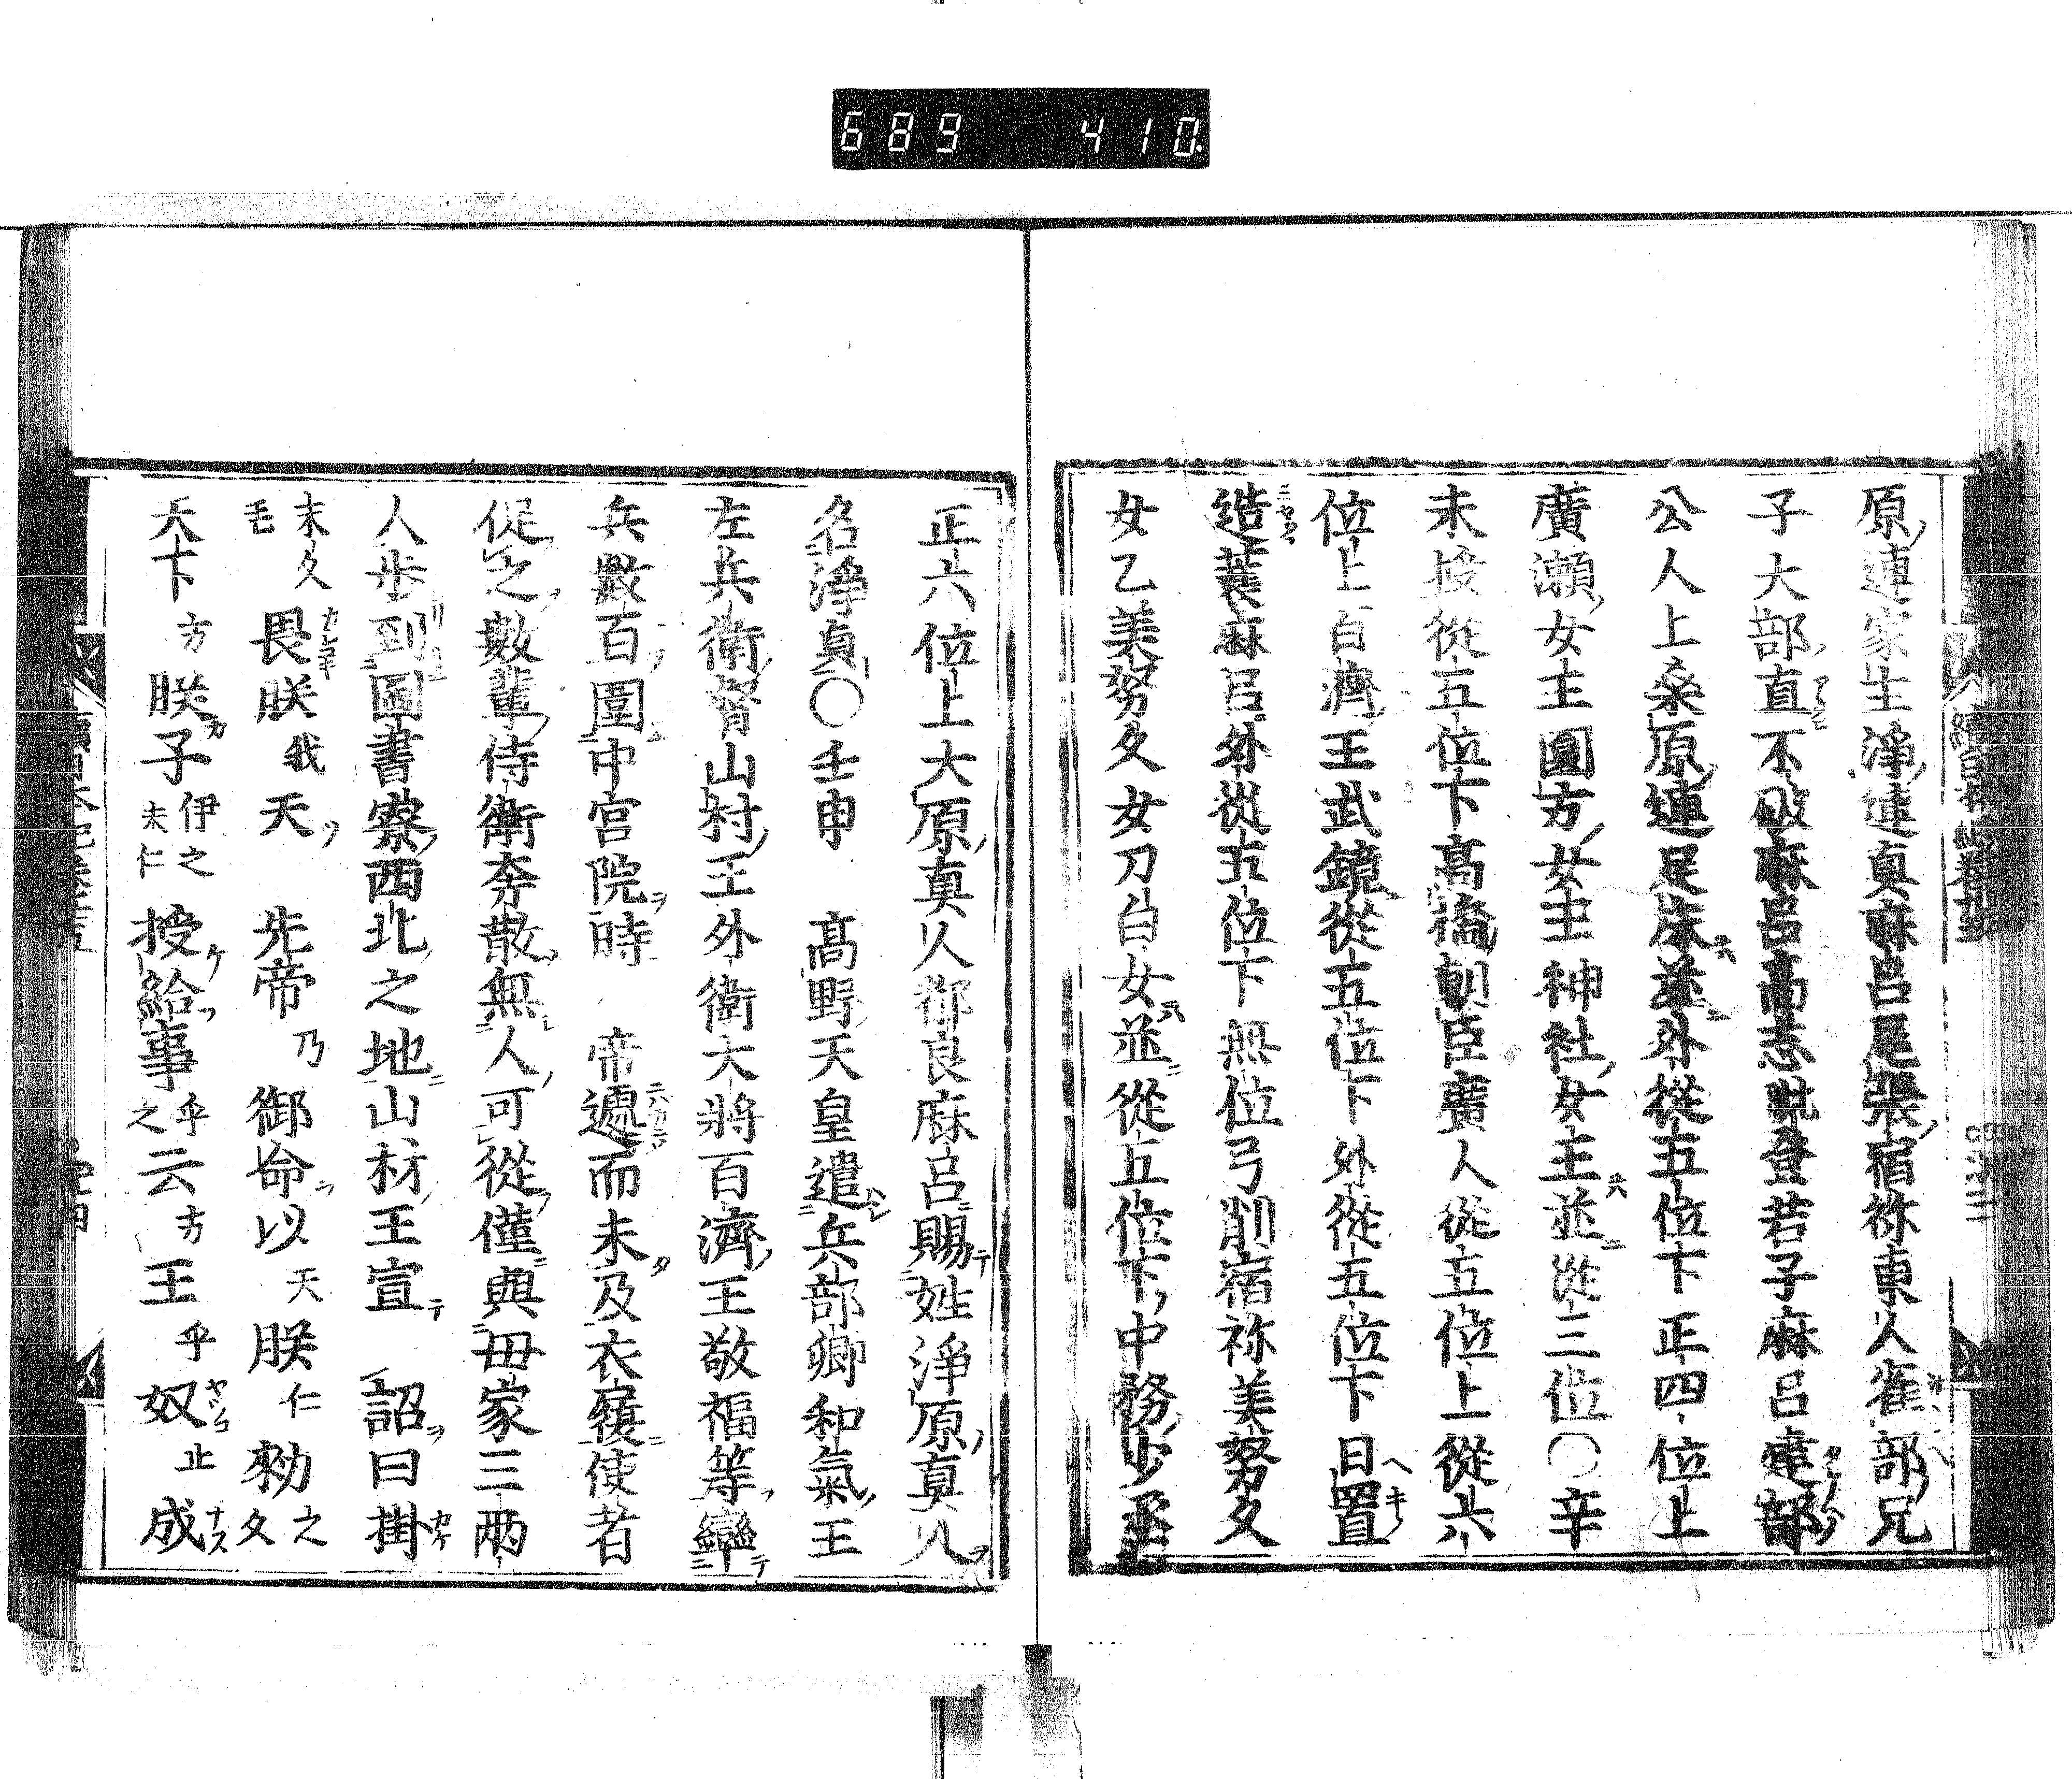 689 410
原連家生淨連真麻呂尾張宿祢東人雀部兄
子大部直不破麻呂高志毗登若子麻呂建部
公人上桑原連足床並外從五位下正四位上
廣瀬女王圓方女王神社女王並從三位〇辛
未授從五位下高橋朝臣廣人從五位上從六
位上百濟王武鏡從五位下外從五位下日置
造蓑麻呂外從五位下無位弓削宿祢美努久
女乙美努久女刀自女並從五位下中務少丞
正六位上大原真人都良麻呂賜姓淨原真人
名淨貞〇壬申 髙野天皇遣兵部卿和氣王
左兵衛督山村王外衛大將百濟王敬福等率
兵數百圍中宮院時 帝遽而未及衣履使者
促之數輩侍衛奔散無人可從僅與母家三兩
人歩到圖書寮西北之地山村王宣 詔曰掛
末久毛畏朕我天 先帝乃御命以天朕仁勅之久
天下方朕子伊末之仁授給事乎之云方王乎奴止成